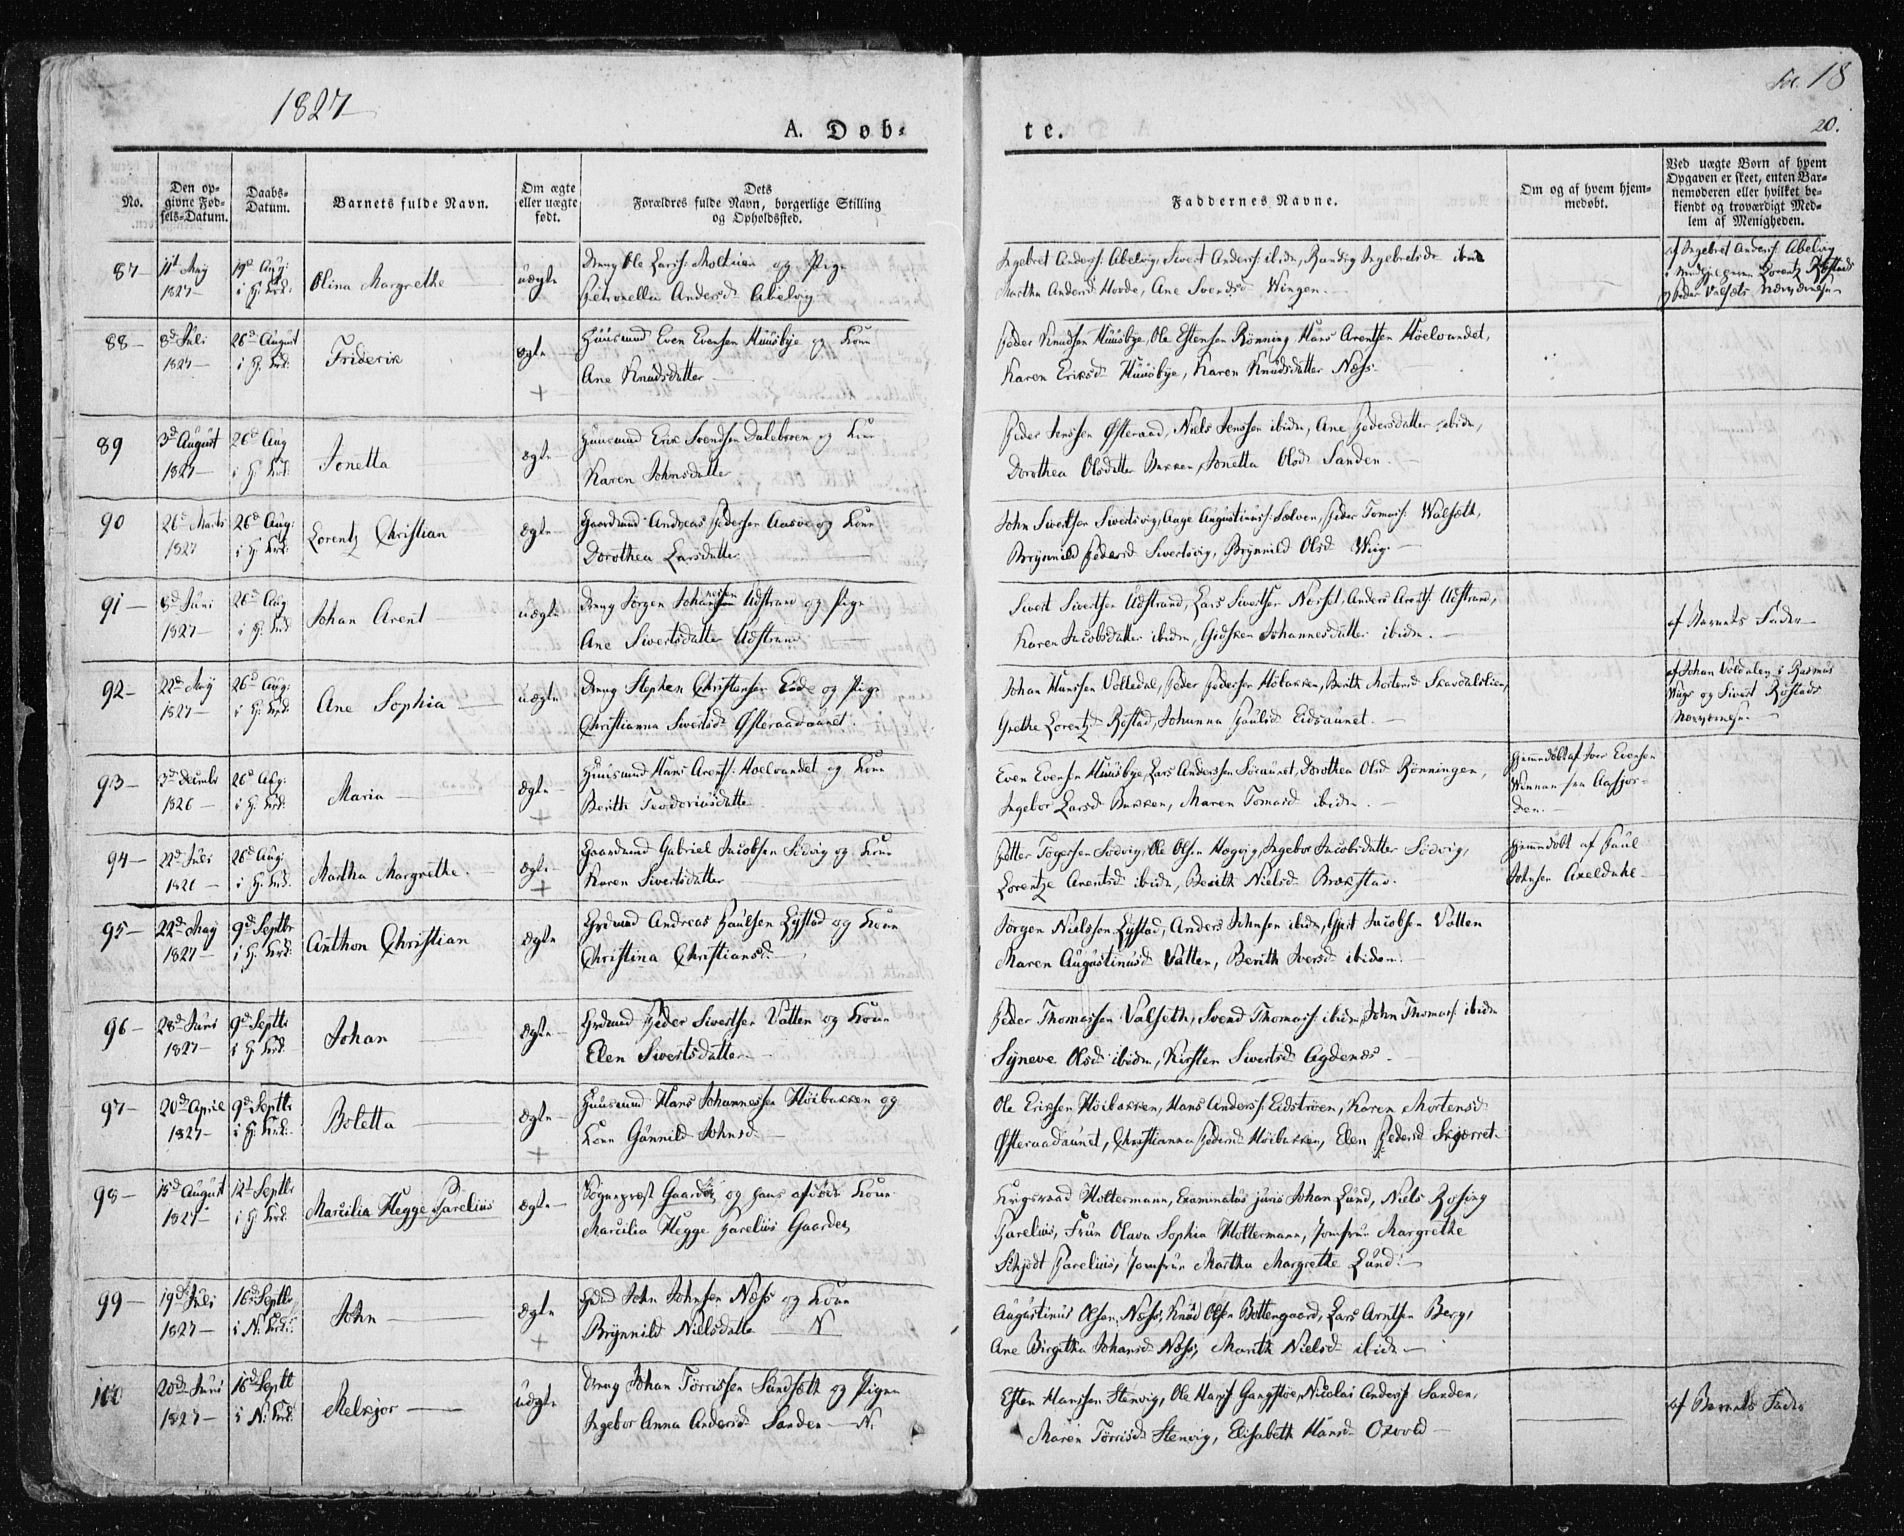 1827
Fol. 18
A. Døb-
te.
20.
No.
Den op-
givne Fød-
sels-Datum.
Daabs-
Datum.
Barnets fulde Navn.
Om ægte
eller uægte
født.
Dets
Forældres fulde Navn, borgerlige Stilling
og Opholdssted.
Faddernes Navne.
Om og af hvem hjem-
medøbt.
Ved uægte Børn af hvem
Opgaven er skeet, enten Bar-
nemoderen eller hvilket be-
kiendt og troværdigt Med-
lem af Menigheden.
87 11t May 1827 19d Aug: i H. Kird: Olina Margrethe uægte
Dreng Ole Larss: og Pige
Petronellia Andersd: Abelvig
Ingebret Anderss: Abelvig, Sivert Anderss: ibidm, Randig Ingebretsdr ibid
Martha Andersd Hovde, Ane Svendsd Wingen.
af Ingebret Anderss: Abelvig
88 8d Juli 1827 26d August i H. Kird: Friderik ægte
Huusmand Even Evensen Huusbye og Kone
Ane Knudsdatter
Peder Knudsen Huusbye, Ole Estensen Rønning Hans Arentsen Hoelvandet,
Karen Eriksd Huusbye, Karen Knudsdatter Næss
89 3d August 1827 26d Aug i H. Kird: Jonetta ægte
Huusmand Erik Svendsen og Kone
Karen Johnsdatter
Peder Jenssen Østeraad, Niels Jenssen ibidm, Ane Pedersdatter ibidm,
Dorothea Olsdatter Bakken, Jonetta Olsd Sanden.
90 26d Marts 1827 26d Aug: i H. Kird: Lorentz Christian ægte
Gaardmand Andreas Pedersen Aasve og Kone
Dorothea Larsdatter
John Sivertsen Sivertsvig, Aage Augustinuss: Selven, Peder Tomass: Walseth,
Brynnild Pedersd Sivertsvig, Brynnild Olsd Wiig.
91 8d Juni 1827 26d Aug i H. Kird Johan Arent uægte
Dreng Jørgen Johannesen Udstrand og Pige
Ane Sivertsdatter Udstrand
Sivert Sivertsen Udstrand, Lars Sivertsen, Anders Arents: Udstrand,
Karen Jacobsdatter ibidm, Gidsken Johannesdatter ibidm.
af Barnets Fader
92 22d May 1827 26d Aug: i H. Kird Ane Sophia uægte
Dreng Stephen Christensen Eide og Pige
Christianna Sivertsd: Østeraadaunet.
Johan Hanssen Volledal, Peder Pedersen, Berith Mortensd
Grethe Lorentzd Røstad, Johanna Paulsd Eidsaunet.
og Sivert Røstads
Nærværelse.
93 3d Decembr 1826 26d Aug: i H. Kird: Maria ægte
Huusmand Hans Arents: Hoelvandet og Kone
Berith Teodoriusdatter
Even Evensen Huusbye, Lars Anderssen, Dorothea Olsd Rønningen,
Ingebor Larsd Bakken, Maren Tomasd ibidm.
Hjemmedøbt af Iver Evensen
fra Aafjor-
den.
94 22d Juli 1826 26d Aug: i H. Kird Martha Margrethe ægte
Gaardmand Gabriel Jacobsen Sødvig og Kone
Karen Sivertsdatter
Petter Tøgersen Sødvig, Ole Olsen, Ingebor Jacobsdatter Sødvig,
Lorentze Arentsd ibidm, Berith Nielsd Brekstad.
Hjemmedøbt af Paul
Johnsen
95 22d May 1827 9d Septbr i H. Kird: Anthon Christian ægte
Grdmand Andreas Paulsen Lysstad og Kone
Christina Christiansd
Jørgen Nielssen Lysstad, Anders Johnsen ibidm, Jacobsen Vatten
Maren Augustinusd Vatten, Berith Iversd ibidem.
96 28d Juni 1827 9d Septbr i H. Kird: Johan ægte
Grdmand Peder Sivertsen Vatten og Kone
Elen Sivertsdatter
Peder Thomassen Valseth, Svend Thomass: ibidm, John Thomas ibidm
Synneve Olsd ibidm, Kirsten Sivertsd Agdenæs.
97 20d April 1827 9d Septbr i H. Kird: Boletta ægte
Huusmand Hans Johannessen Høibakken og
Kone Gunnild Johnsd
Ole Eriksen Høibakken, Hans Anderss: Eidstrøen, Karen Mortensd
Østeraadaunet, Christianna Pedersd Høibakken, Elen Pedersd
98 15d August 1827 12t Septbr i H Kird: Marcilia Hegge Parelius ægte
Sognepræst Gaarder og hans afdøde Kone
Marcilia Hegge Parelius Gaarder,
Krigsraad Holtermann, Examinatus juris Johan Lund, Niels Rosing
Parelius, Frue Olava Sophia Holtermann, Jomfrue Margrethe
Schjødt Parelius, Jomfrue Martha Margrethe Lund.
99 19d Juli 1827 16d Septbr i N. Kird: John ægte
Grdmd John Johnsen Næss og Kone
Brynnild Nielsdatter N
Augustinus Olsen Næss, Knud Olsen Bottengaard, Lars Arntsen Berg,
Ane Birgitha Johansd Næss, Marith Nielsd ibidm
100 20d Juni 1827 16d Septbr i N. Kird: Melkjor uægte
Dreng Johan Tørrissen Sundseth og Pigen
Ingebor Anna Andersd Sanden N.
Esten Hanssen Stenvig, Ole Hanss, Nicolai Anderss Sanden,
Maren Tørrisd Stenvig, Elisabeth Hansd Oxvold
af Barnets Fader